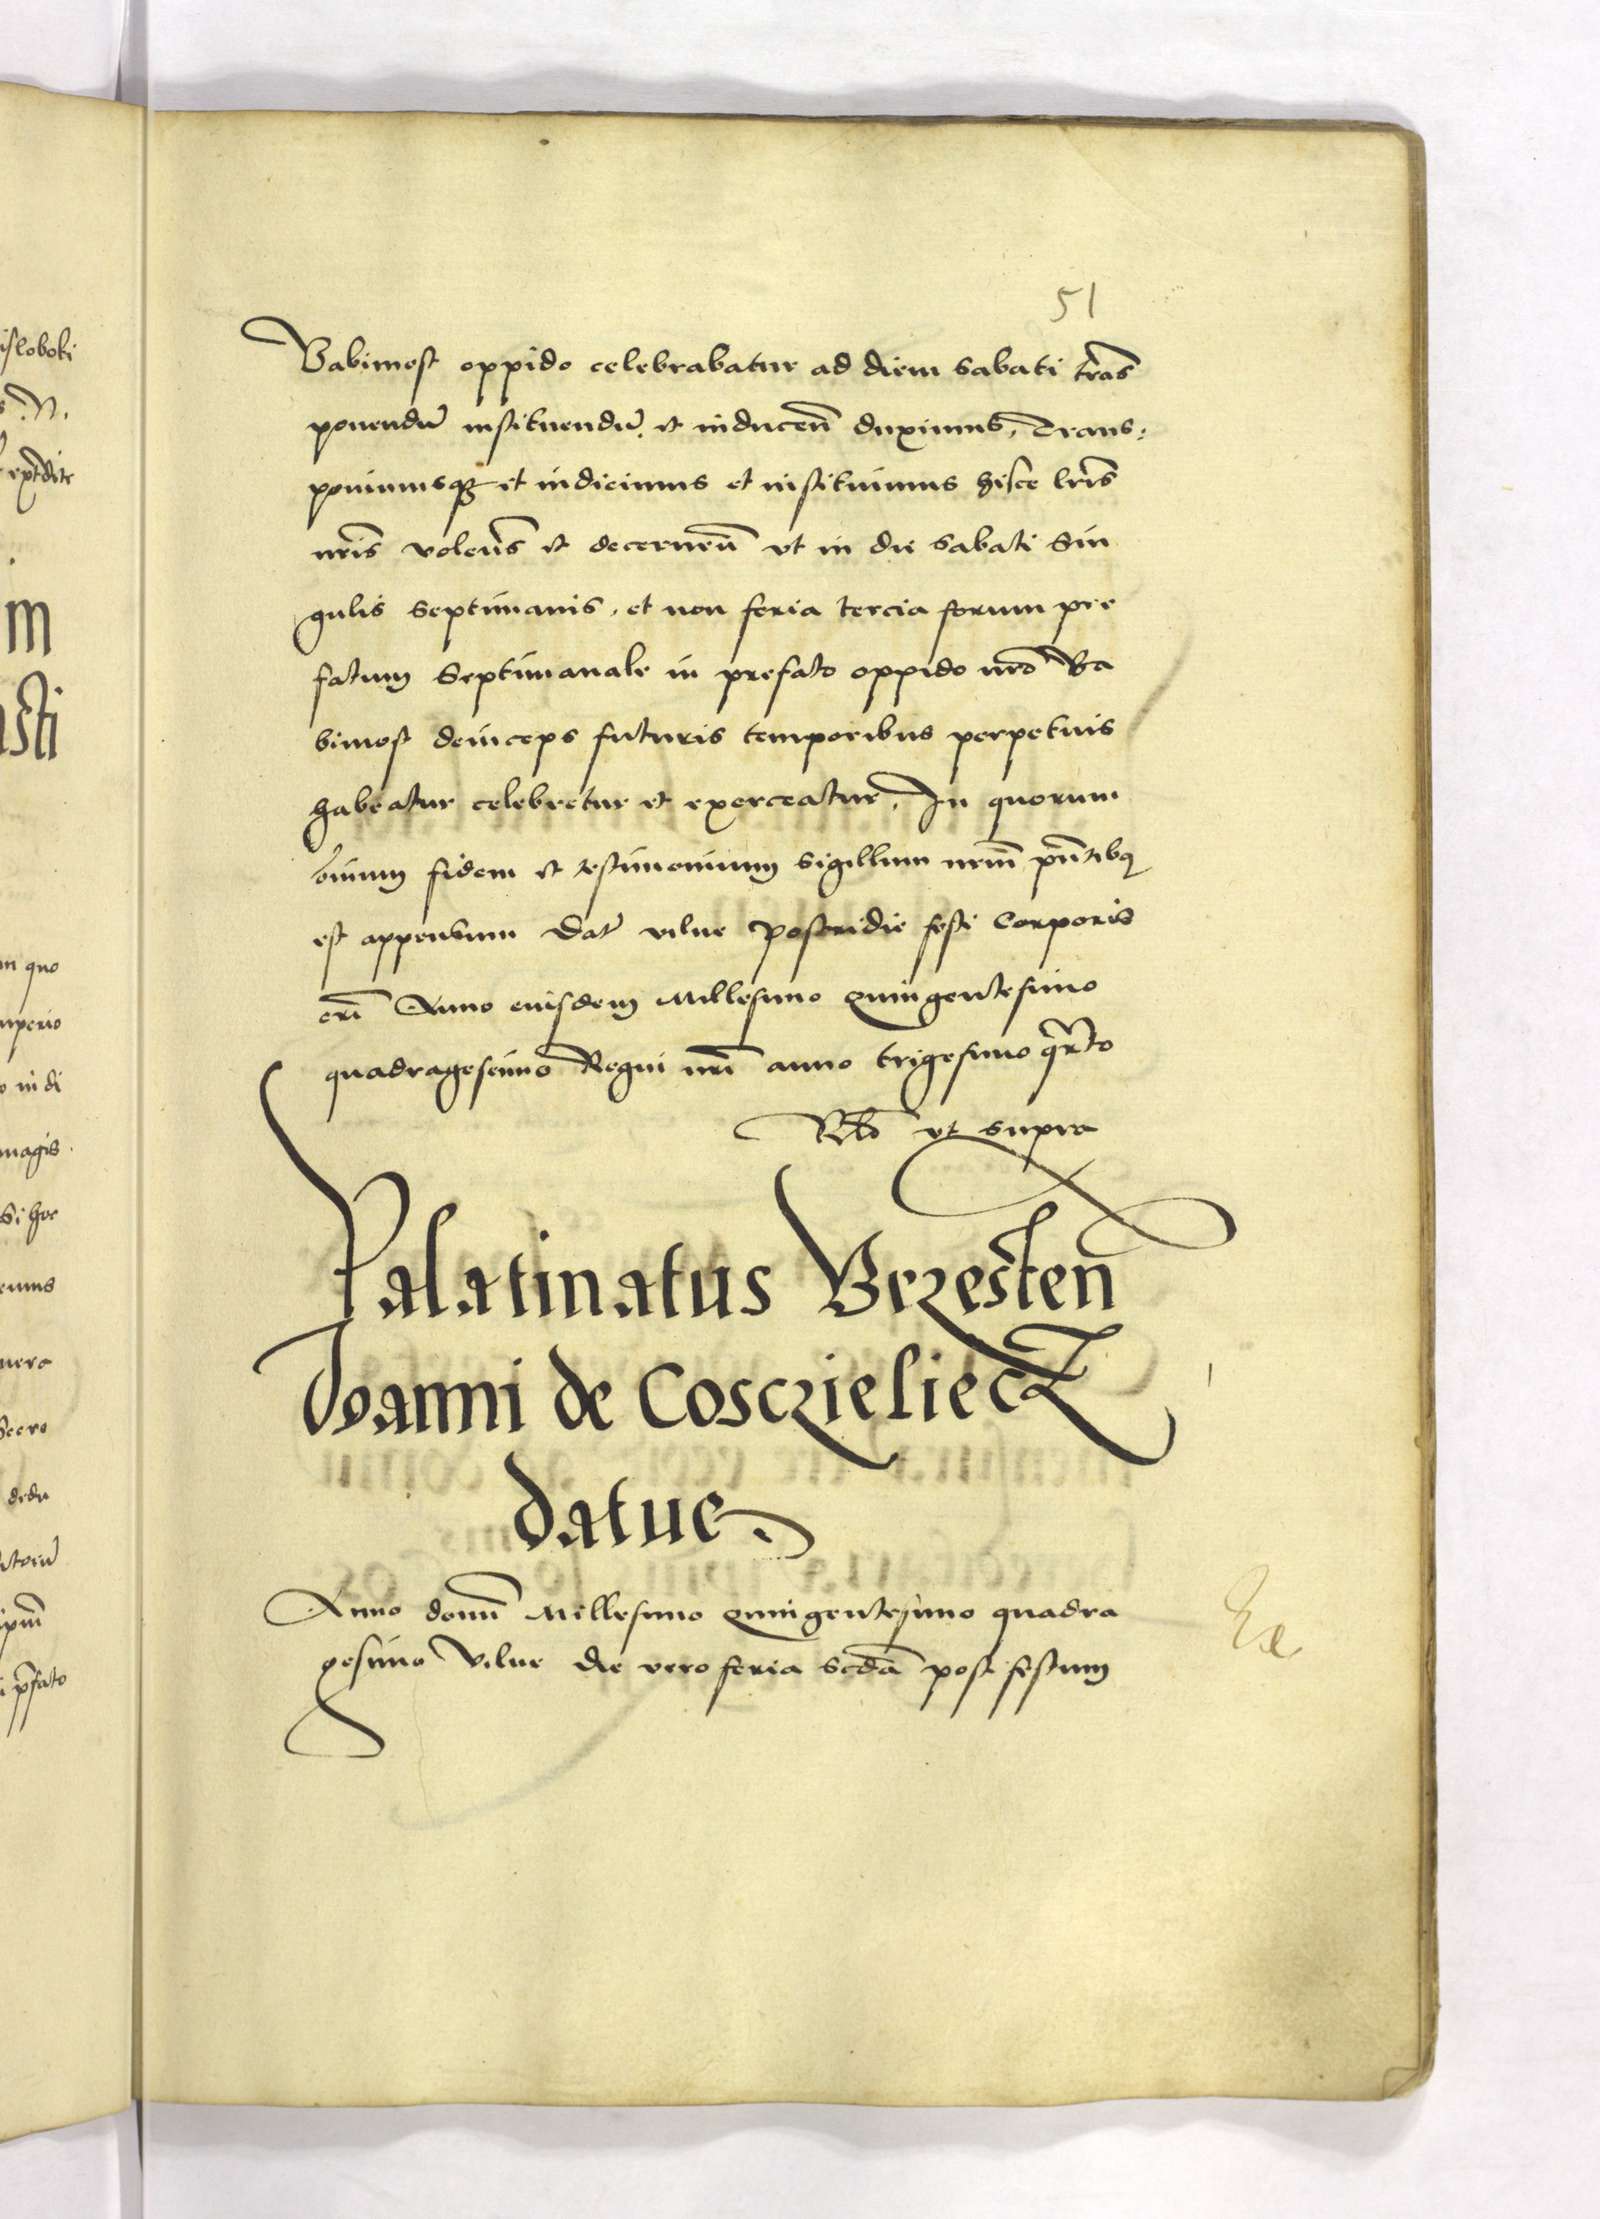 51
Babimost oppido celebrabatur ad diem Sabati trans
ponendū instituendū et inducen̄ duximus, Trans:
ponimusq3 et indicimus et instituimus hisce lr̄is
nr̄is volen̄s et decernen̄ vt in die Sabati Sin
gulis Septimanis, et non feria tercia forum pre
fatum Septimanale in prefato oppido nr̄o Ba
bimost deinceps futuris temporibus perpetuis
habeatur celebretur et exerceatur, In quorum
om̄ium fidem et testimonium Sigillum nr̄um pn̄tibq
est appensum Dat̄ vilne postridie festi Corporis
cri̅ Anno eiusdem Millesimo Quingentesimo
quadragesimo Regni nr̄i anno trigesimo qr̄to
vt supra
Palatinatus Brzesten̄
Joanni de Cosczieliecz
datur
Anno domi̅ Millesimo Quingentesimo quadra
gesimo Vilne die vero feria Scd̄a post festum
isloboki
m
sti
in quo
mperio
o indi
magis
Si hoc